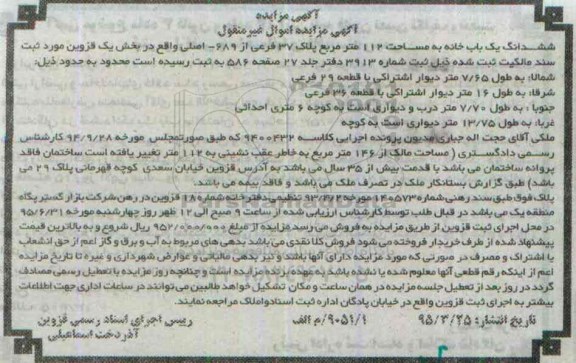 آگهی مزایده
آگهی مزایده اموال غیرمنقول
ششدانگ یک باب خانه به مساحت ۱۱۲ متر مربع پلاک ۳۷ فرعی از ۶۸۹- اصلی واقع در بخش یک قزوین مورد ثبت
سند مالکیت ثبت شده ذیل ثبت شماره ۳۹۱۳ دفتر جلد ۲۷ صفحه ۵۸۶ به ثبت رسیده است محدود به حدود ذیل:
شمالا: به طول ۷/۶۵ متر دیوار اشتراکی با قطعه ۲۹ فرعی
شرقا: به طول ۱۶ متر دیوار اشتراکی با قطعه ۳۶ فرعی
جنوبا: به طول ۷/۷۰ متر درب و دیواری است به کوچه ۶ متری احداثی
غربا: به طول ۱۳/۷۵ متر دیواری است به کوچه
ملکی آقای حجت اله جباری مدیون پرونده اجرایی کلاسه ۹۴۰۰۴۳۲ که طبق صورتمجلس مورخه ۹۴/۹/۲۸ کارشناس
رسمی دادگستری (مساحت مالک از ۱۴۶ متر مربع به خاطر عقب نشینی به ۱۱۲ متر تغییر یافته است ساختمان فاقد
پروانه ساختمان می باشد با قدمت بیش از ۳۵ سال می باشد به آدرس قزوین خیابان سعدی کوچه قهرمانی پلاک ۲۹ می
باشد) طبق گزارش بستانکار ملک در تصرف ملک می باشد و فاقد بیمه می باشد.
پلاک فوق طبق سند رهنی شماره ۱۰۵۷۳ مورخه تنظیمی دفترخانه شماره ۱۸ قزوین در رهن شرکت بازار گستر پگاه
منطقه یک می باشد در قبال طلب توسط کارشناس ارزیابی شده از ساعت ۹ صبح الی ۱۲ ظهر روز چهارشنبه مورخه ۹۵/۶/۳۱
در محل اجرای ثبت قزوین از طریق مزایده به فروش می رسد مزایده از مبلغ ۹۵۲/۰۰۰/۰۰۰ ریال شروع و به بالاترین قیمت
پیشنهاد شده از طرف خریدار فروخته می شود فروش کلا نقدی می باشد بدهی های مربوط به آب و برق و گاز اعم از حق انشعاب
یا اشتراک و مصرف در صورتی که مورد مزایده دارای آنها باشد و نیز بدهی مالیاتی و عوارض شهرداری و غیره تا تاریخ مزایده
اعم از اینکه رقم قطعی آنها معلوم شده یا نشده باشد به عهده برنده مزایده است و چنانچه روز مزایده با تعطیل رسمی مصادف
گردد در روز بعد از تعطیل جلسه مزایده در همان ساعت و مکان تشکیل خواهد طالبین می توانند در ساعات اداری جهت اطلاعات
بیشتر به اجرای ثبت قزوین واقع در خیابان پادگان اداره ثبت اسناد و املاک مراجعه نمایند.
تاریخ انتشار: ۹۵/۳/۲۵ ۹۰۵۱/۱/م الف رییس اجرای اسناد رسمی قزوین
آذردخت اسماعیلی